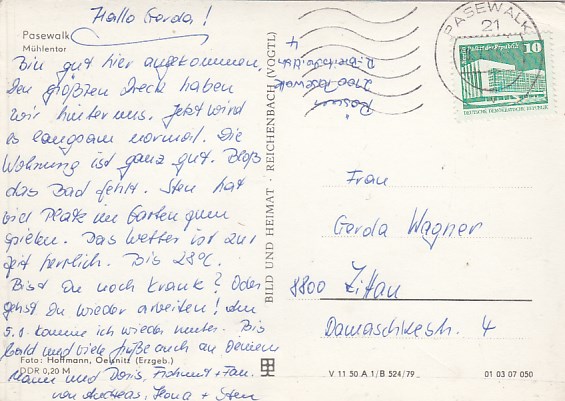 Hallo Gerda!
Pasewalk
Mühlentor
Bin gut hier angekommen.
Den größten Dreck haben
wir hinter uns. Jetzt wird
es langsam normal. Die
Wohnung ist ganz gut. Bloß
das Bad fehlt. Sten hat
viel Platz im Garten zum
spielen. Das Wetter ist zur
Zeit herrlich. Bis 28°C.
Bist Du noch krank? Oder
gehst Du wieder arbeiten! Am
5.9. komme ich wieder runter. Bis
bald und viele Grüße auch an Deinen
Mann und Doris, + Fam.
von Andreas, Ilona + Sten
Foto: Hoffmann, Oelsnitz (Erzgeb.)
DDR 0,20 M
BILD UND HEIMAT · REICHENBACH (VOGTL)
2100 Pasewalk
4
PASEWALK
21
10
DEUTSCHE DEMOKRATISCHE REPUBLIK
Frau
Gerda Wagner
8800 Zittau
Damaschkestr. 4
V 11 50 A 1/B 524/79
01 03 07 050